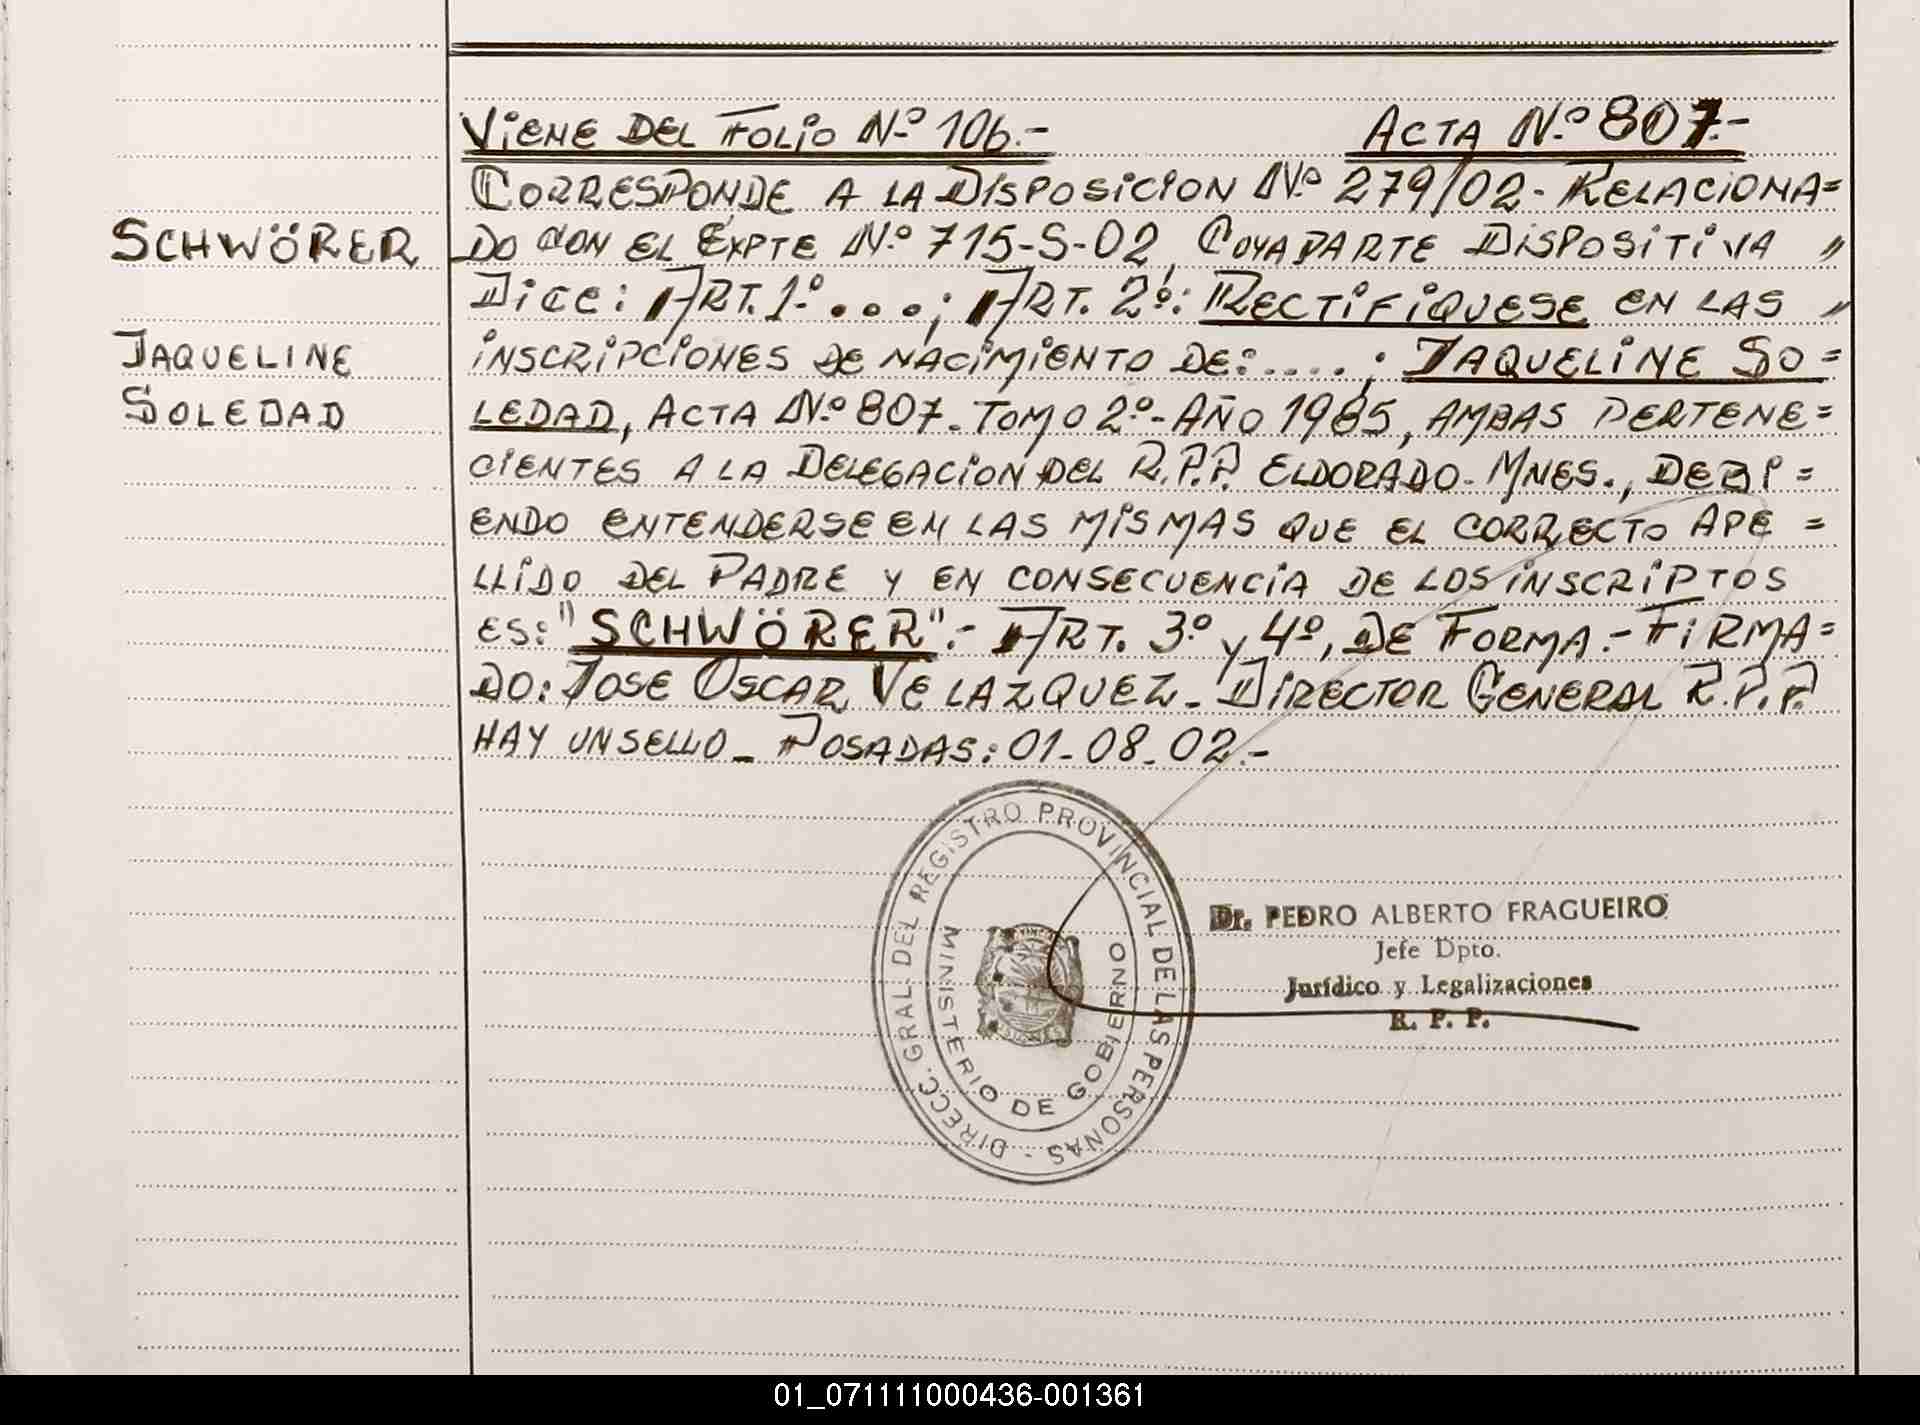 VIENE DEL FOLIO Nº 106.- ACTA Nº 807.-
CORRESPONDE A LA DISPOSICION Nº 279/02- RELACIONA=
SCHWÖRER
DO CON EL EXPTE Nº 715-S-02, CUYA PARTE DISPOSITIVA "
DICE: ART. 1º....; ART. 2º: RECTIFIQUESE EN LAS "
JAQUELINE
INSCRIPCIONES DE NACIMIENTO DE:....; JAQUELINE SO=
SOLEDAD
LEDAD, ACTA Nº 807. TOMO 2º-AÑO 1985, AMBAS PERTENE=
CIENTES A LA DELEGACION DEL R.P.P. ELDORADO. MNES., DEBI=
ENDO ENTENDERSE EN LAS MISMAS QUE EL CORRECTO APE=
LLIDO DEL PADRE Y EN CONSECUENCIA DE LOS INSCRIPTOS
ES: "SCHWÖRER".- ART. 3º y 4º, DE FORMA.- FIRMA=
DO: JOSE OSCAR VELAZQUEZ- DIRECTOR GENERAL R.P.P.
HAY UN SELLO_ POSADAS: 01-08-02.-
DIRECC. GRAL DEL REGISTRO PROVINCIAL DE LAS PERSONAS -
MINISTERIO DE GOBIERNO
Dr. PEDRO ALBERTO FRAGUEIRO
Jefe Dpto.
Jurídico y Legalizaciones
R. P. P.
01_071111000436-001361